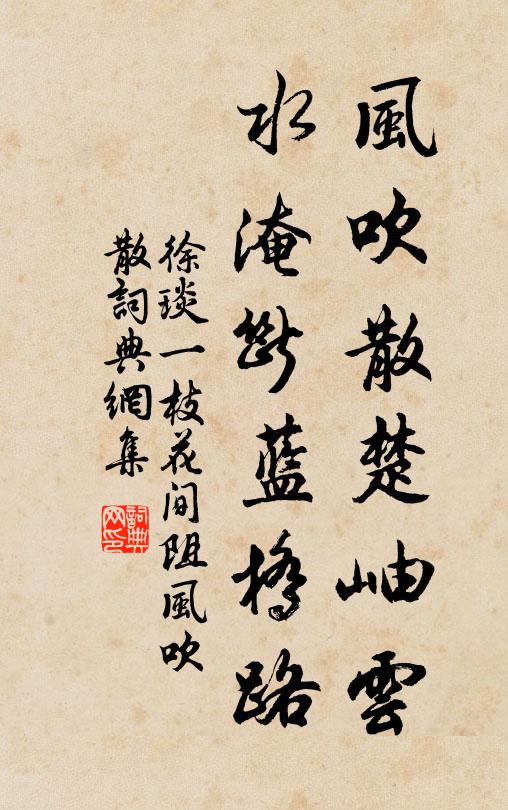 風吹散楚岫雲
水淹斷藍橋路
徐琰一枝花间阻風吹
散詞典網集
詞典网印